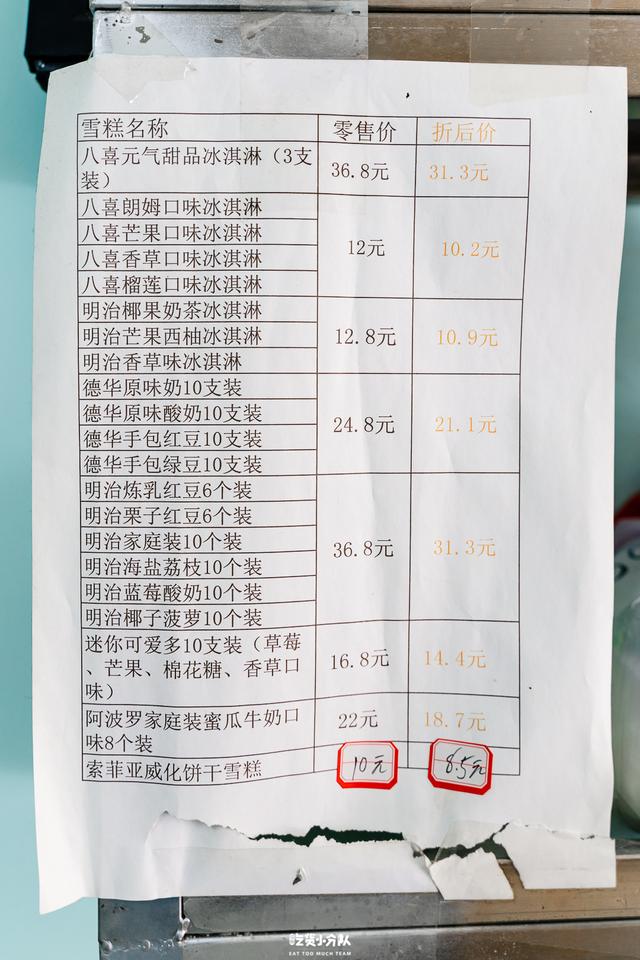 雪糕名称 零售价 折后价
八喜元气甜品冰淇淋（3支
装）
36.8元 31.3元
八喜朗姆口味冰淇淋
八喜芒果口味冰淇淋
八喜香草口味冰淇淋
八喜榴莲口味冰淇淋
12元 10.2元
明治椰果奶茶冰淇淋
明治芒果西柚冰淇淋
明治香草味冰淇淋
12.8元 10.9元
德华原味奶10支装
德华原味酸奶10支装
德华手包红豆10支装
德华手包绿豆10支装
24.8元 21.1元
明治炼乳红豆6个装
明治栗子红豆6个装
明治家庭装10个装
明治海盐荔枝10个装
明治蓝莓酸奶10个装
明治椰子菠萝10个装
36.8元 31.3元
迷你可爱多10支装（草莓
、芒果、棉花糖、香草口
味）
16.8元 14.4元
阿波罗家庭装蜜瓜牛奶口
味8个装
22元 18.7元
索菲亚威化饼干雪糕 10元 8.5元
吃货小分队
EAT TOO MUCH TEAM